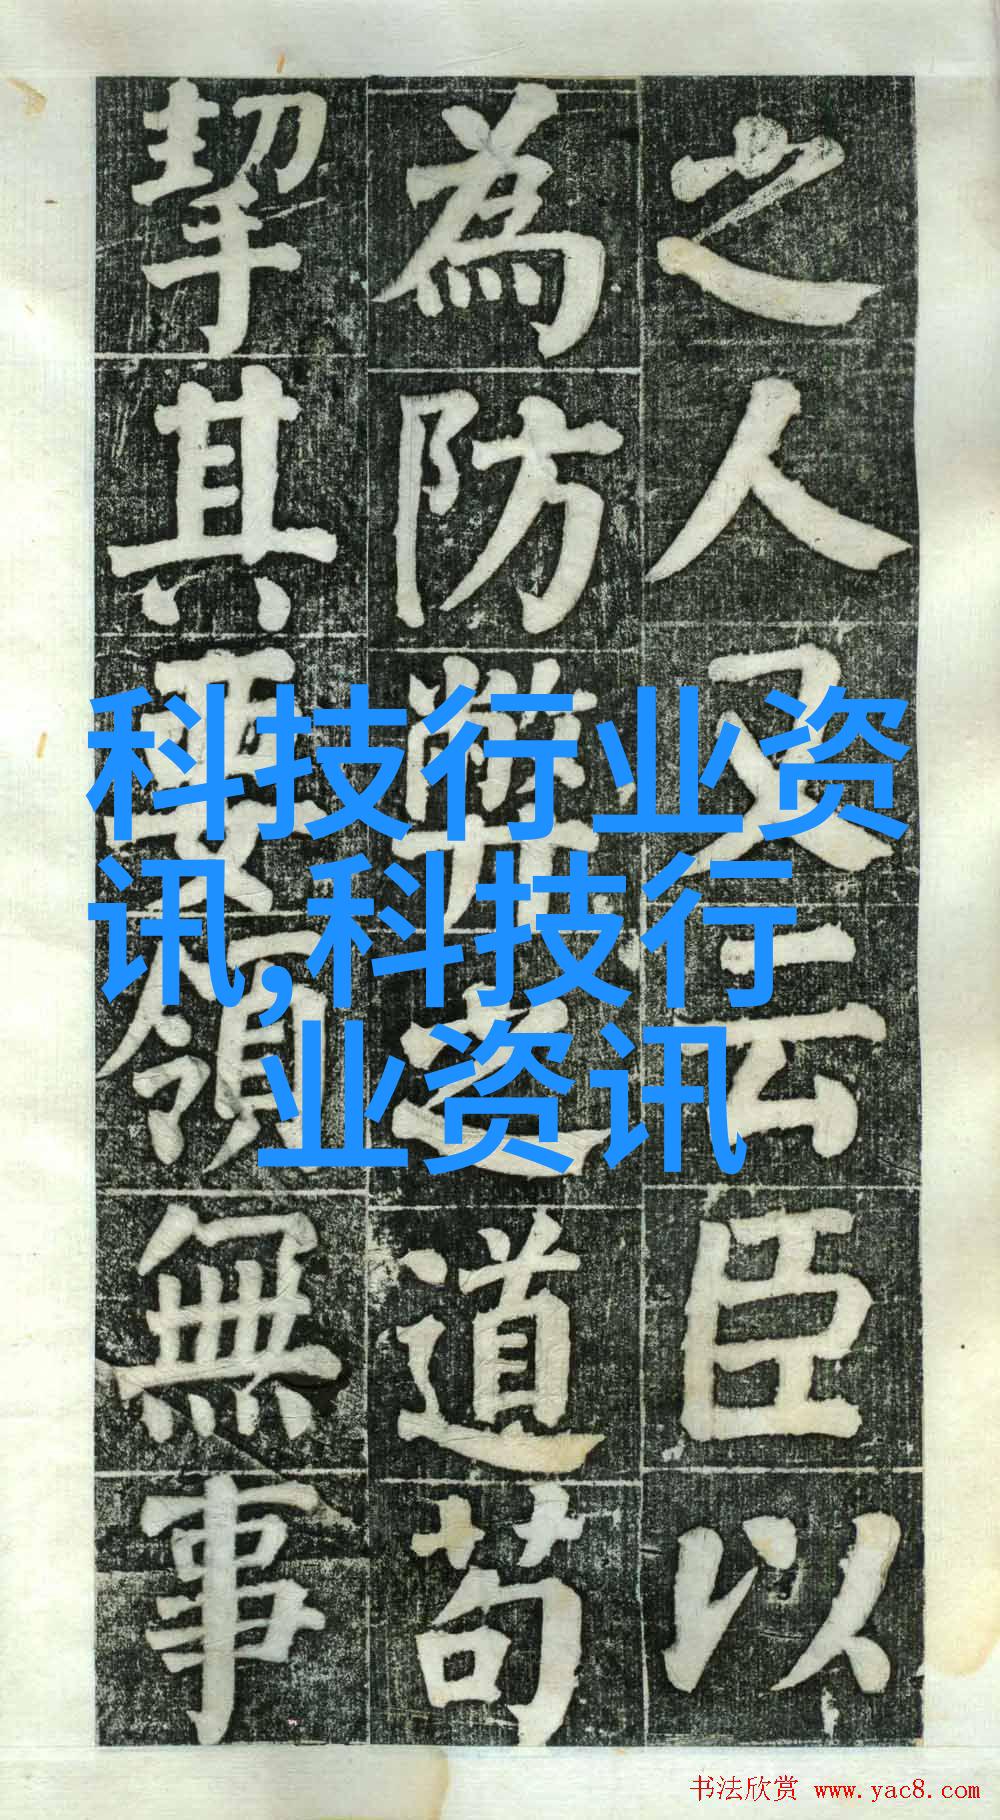 之人又云臣以
為防弊之道苟
挈其要領無事
科技行业资
讯,科技行
业资讯
书法欣赏 www.yac8.com